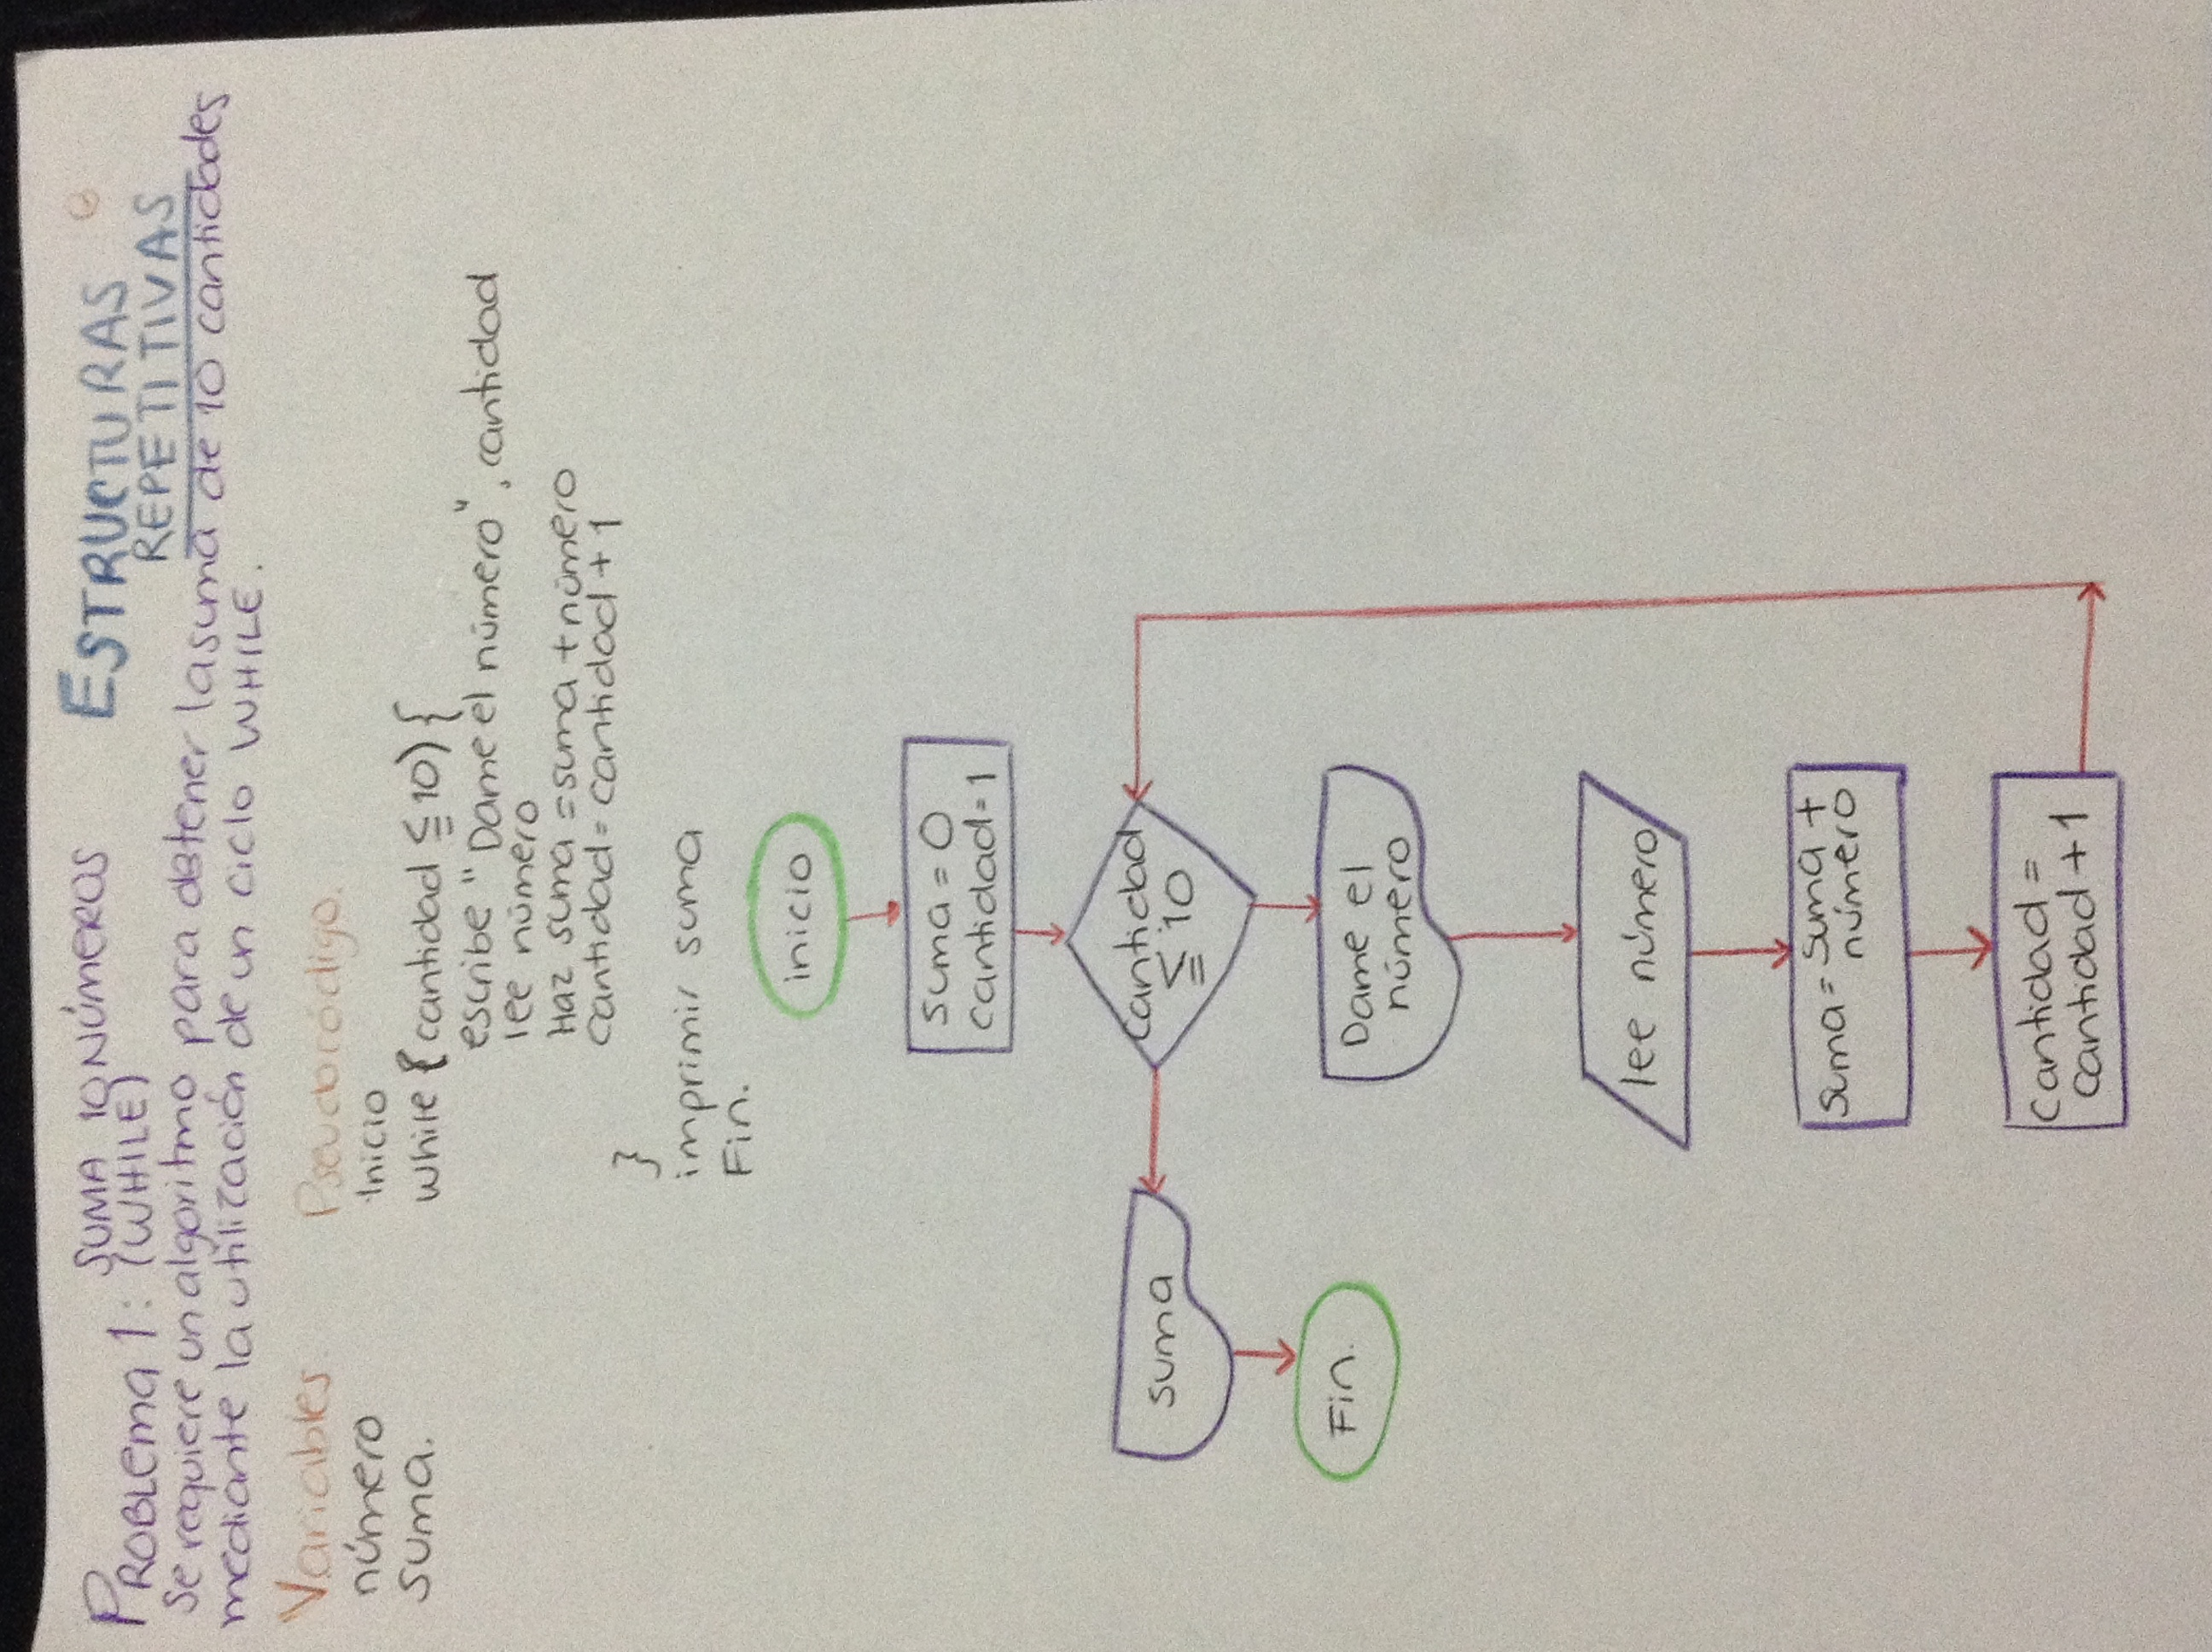 SUMA 10 NÚMEROS
PROBLEMA 1: (WHILE)
ESTRUCTURAS
REPETITIVAS
Se requiere un algoritmo para obtener la suma de 10 cantidades
mediante la utilización de un ciclo WHILE.
Variables.
número
suma.
Pseudocódigo.
Inicio
while (cantidad ≦ 10) {
escribe "Dame el número", cantidad
lee número
Haz suma = suma + número
cantidad = cantidad + 1
}
imprimir suma
Fin.
inicio
suma = 0
cantidad = 1
cantidad
≦ 10
suma
Fin.
Dame el
número
lee número
suma = suma +
número
cantidad =
cantidad + 1